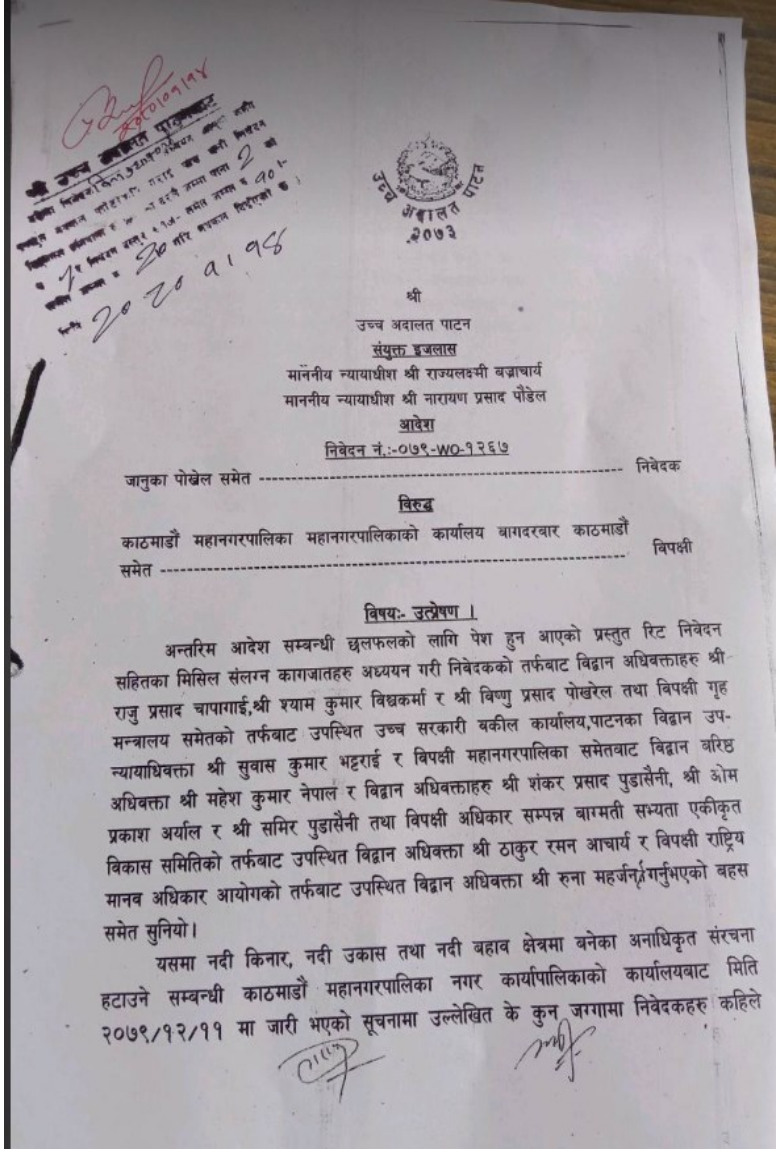 २०८०।०१।१४
श्री उच्च अदालत पाटनबाट
2
१०।-
20
2080।1।14
उच्च अदालत पाटन
२०७३
श्री
उच्च अदालत पाटन
संयुक्त इजलास
माननीय न्यायाधीश श्री राज्यलक्ष्मी बज्राचार्य
माननीय न्यायाधीश श्री नारायण प्रसाद पौडेल
आदेश
निवेदन नं.:-०७९-WO-१२६७
जानुका पोखेल समेत ------------------------------------------------ निवेदक
विरुद्ध
काठमाडौं महानगरपालिका महानगरपालिकाको कार्यालय बागदरबार काठमाडौं
समेत ------------------------------------------------------------ विपक्षी
विषयः- उत्प्रेषण ।
अन्तरिम आदेश सम्बन्धी छलफलको लागि पेश हुन आएको प्रस्तुत रिट निवेदन
सहितका मिसिल संलग्न कागजातहरु अध्ययन गरी निवेदकको तर्फबाट विद्वान अधिवक्ताहरु श्री
राजु प्रसाद चापागाई,श्री श्याम कुमार विश्वकर्मा र श्री विष्णु प्रसाद पोखरेल तथा विपक्षी गृह
मन्त्रालय समेतको तर्फबाट उपस्थित उच्च सरकारी वकील कार्यालय,पाटनका विद्वान उप-
न्यायाधिवक्ता श्री सुवास कुमार भट्टराई र विपक्षी महानगरपालिका समेतबाट विद्वान वरिष्ठ
अधिवक्ता श्री महेश कुमार नेपाल र विद्वान अधिवक्ताहरु श्री शंकर प्रसाद पुडासैनी, श्री ओम
प्रकाश अर्याल र श्री समिर पुडासैनी तथा विपक्षी अधिकार सम्पन्न बाग्मती सभ्यता एकीकृत
विकास समितिको तर्फबाट उपस्थित विद्वान अधिवक्ता श्री ठाकुर रमन आचार्य र विपक्षी राष्ट्रिय
मानव अधिकार आयोगको तर्फबाट उपस्थित विद्वान अधिवक्ता श्री रुना महर्जनले गर्नुभएको बहस
समेत सुनियो।
यसमा नदी किनार, नदी उकास तथा नदी बहाव क्षेत्रमा बनेका अनाधिकृत संरचना
हटाउने सम्बन्धी काठमाडौं महानगरपालिका नगर कार्यपालिकाको कार्यालयबाट मिति
२०७९/१२/११ मा जारी भएको सूचनामा उल्लेखित के कुन जग्गामा निवेदकहरु कहिले